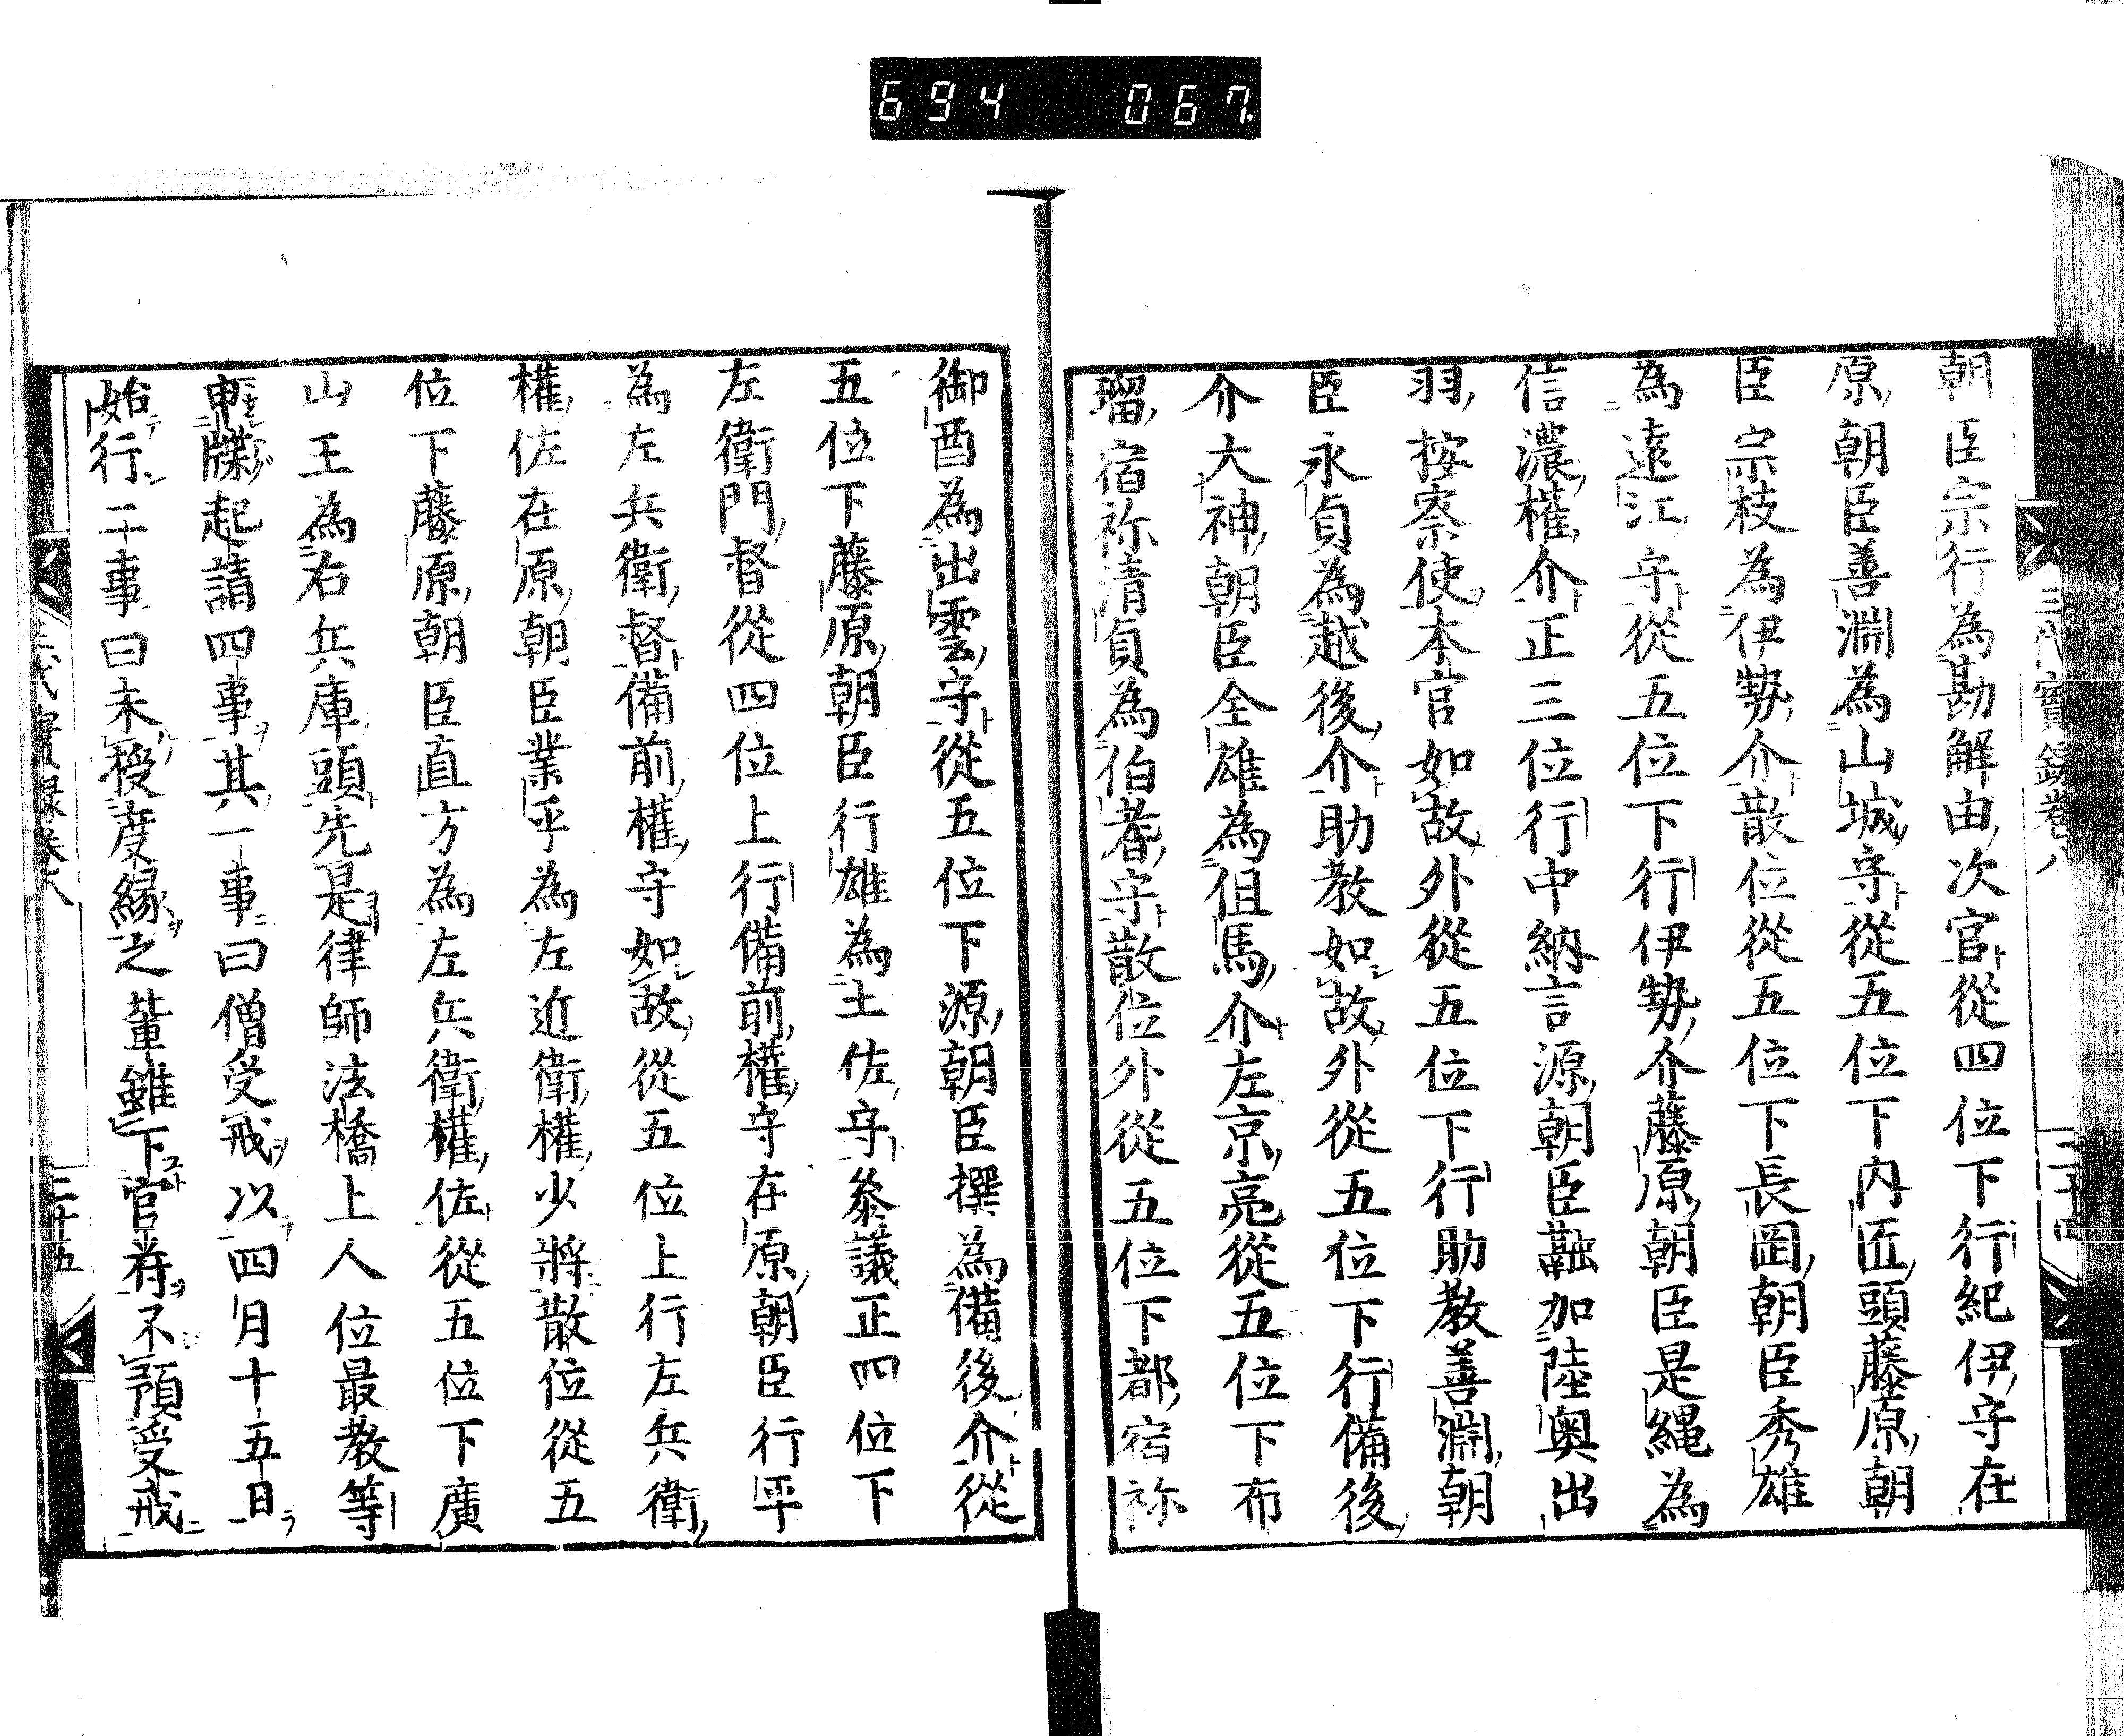 694 067
三代實録卷八
二十四
朝臣宗行為勘解由次官從四位下行紀伊守在
原朝臣善淵為山城守從五位下内匠頭藤原朝
臣宗枝為伊勢介散位從五位下長岡朝臣秀雄
為遠江守從五位下行伊勢介藤原朝臣是繩為
信濃權介正三位行中納言源朝臣融加陸奧出
羽按察使本官如故外從五位下行助教善淵朝
臣永貞為越後介助教如故外從五位下行備後
介大神朝臣全雄為伹馬介左京亮從五位下布
瑠宿祢清貞為伯耆守散位外從五位下都宿祢
御酉為出雲守從五位下源朝臣撰為備後介從
五位下藤原朝臣行雄為土佐守叅議正四位下
左衛門督從四位上行備前權守在原朝臣行平
為左兵衛督備前權守如故從五位上行左兵衛
權佐在原朝臣業平為左近衛權少將散位從五
位下藤原朝臣直方為左兵衛權佐從五位下廣
山王為右兵庫頭先是律師法橋上人位最教等
申牒起請四事其一事曰僧受戒以四月十五日
始行二事曰未授度縁之輩雖下官符不預受戒
三代實録卷八
二十五